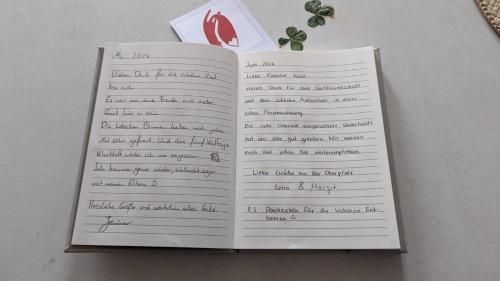 Mai 2024
Vielen Dank für die schöne Zeit
bei euch.
Es war mir eine Freude euer erster
Gast sein zu
Die hübschen Blumen haben mich jedes
Mal sehr gefreut. Und das fünfblättrige
Kleeblatt werde ich nie vergessen.
Ich komme gerne wieder, vielleicht sogar
mit meinen Eltern :)
Herzliche Grüße und weiterhin alles Gute
Juni 2024
Liebe Familie
vielen Dank für eure Gastfreundschaft
und den schönen Aufenthalt in eurer
tollen Ferienwohnung.
Die sehr liebevoll eingerichtete Unterkunft
hat uns sehr gut gefallen. Wir werden
euch auf jeden Fall weiterempfehlen.
Liebe Grüße aus der Oberpfalz
Lena & Margit
P.S. Dankeschön für die leckeren Erd-
beeren :)